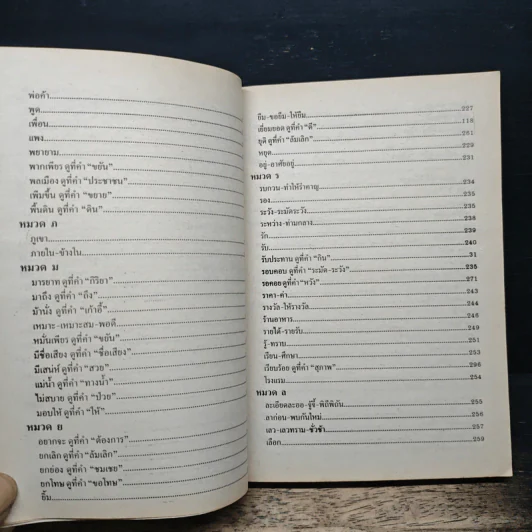 พ่อค้า
พูด
เพื่อน
แพง
พยายาม
พากเพียร ดูที่คำ "ขยัน"
พลเมือง ดูที่คำ "ประชาชน"
เพิ่มขึ้น ดูที่คำ "ขยาย"
พื้นดิน ดูที่คำ "ดิน"
หมวด ภ
ภูเขา
ภายใน-ข้างใน
หมวด ม
มารยาท ดูที่คำ "กิริยา"
มาถึง ดูที่คำ "ถึง"
ม้านั่ง ดูที่คำ "เก้าอี้"
เหมาะ-เหมาะสม-พอดี
หมั่นเพียร ดูที่คำ "ขยัน"
มีชื่อเสียง ดูที่คำ "ชื่อเสียง"
มีเสน่ห์ ดูที่คำ "สวย"
แม่น้ำ ดูที่คำ "ทางน้ำ"
ไม่สบาย ดูที่คำ "ป่วย"
มอบให้ ดูที่คำ "ให้"
หมวด ย
อยากจะ ดูที่คำ "ต้องการ"
ยกเลิก ดูที่คำ "ล้มเลิก"
ยกย่อง ดูที่คำ "ชมเชย"
ยกโทษ ดูที่คำ "ขอโทษ"
ยิ้ม
ยืม-ขอยืม-ให้ยืม 227
เยี่ยมยอด ดูที่คำ "ดี" 118
ยุติ ดูที่คำ "ล้มเลิก" 261
หยุด 229
อยู่-อาศัยอยู่ 231
หมวด ร
รบกวน-ทำให้รำคาญ 234
รอง 235
ระวัง-ระมัดระวัง 235
ระหว่าง-ท่ามกลาง 238
รัก 239
รับ 240
รับประทาน ดูที่คำ "กิน" 31
รอบคอบ ดูที่คำ "ระมัด-ระวัง" 235
รอคอย ดูที่คำ "หวัง" 271
ราคา-ค่า 243
รางวัล-ให้รางวัล 244
ร้านอาหาร 246
รายได้-รายรับ 249
รู้-ทราบ 251
เรียน-ศึกษา 253
เรียบร้อย ดูที่คำ "สุภาพ" 298
โรงแรม 254
หมวด ล
ละเอียดละออ-จู้จี้-พิถีพิถัน 255
ลาก่อน-พบกันใหม่ 256
เลว-เลวทราม-ชั่วช้า 257
เลือก 259